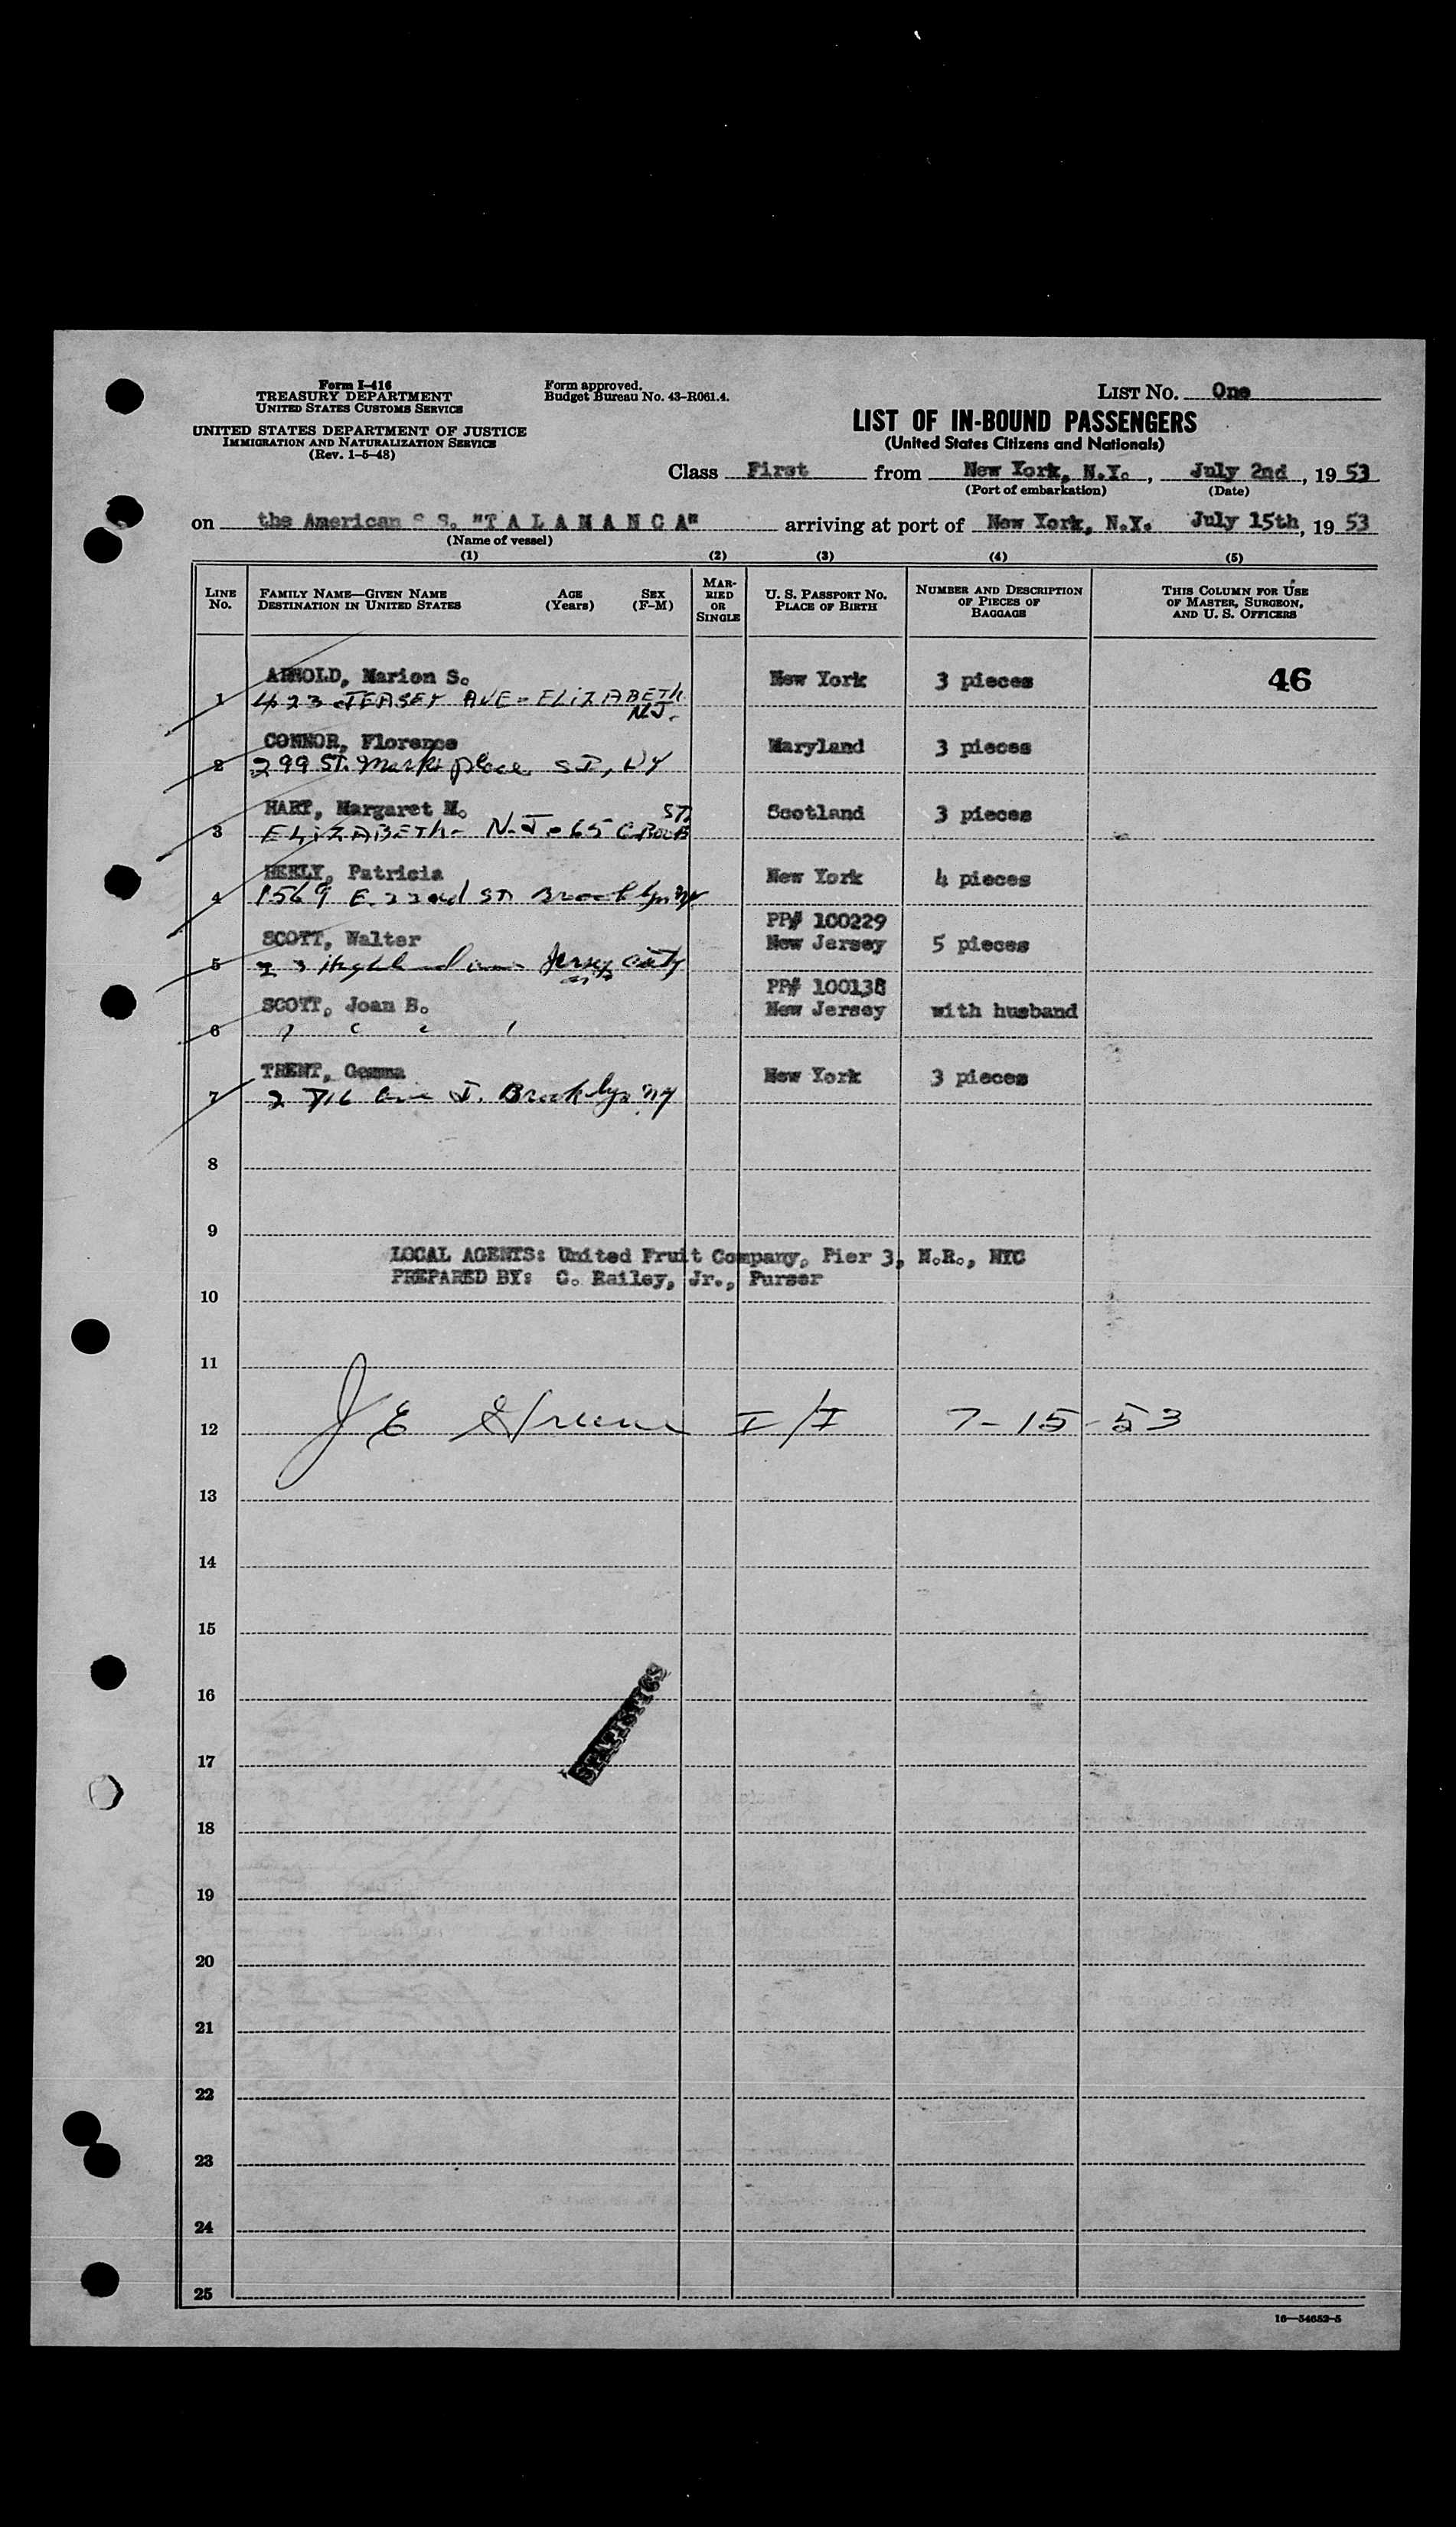 Form I-416
TREASURY DEPARTMENT
UNITED STATES CUSTOMS SERVICE
UNITED STATES DEPARTMENT OF JUSTICE
IMMIGRATION AND NATURALIZATION SERVICE
(Rev. 1-5-48)
Form approved.
Budget Bureau No. 43-R061.4.
LIST NO. One
LIST OF IN-BOUND PASSENGERS
(United States Citizens and Nationals)
Class First from New York, N.Y., July 2nd, 1953
(Port of embarkation) (Date)
on the American S S. "T A L A M A N C A" arriving at port of New York, N.Y. July 15th, 1953
(Name of vessel)
(1) (2) (3) (4) (5)
LINE No. FAMILY NAME—GIVEN NAME DESTINATION IN UNITED STATES AGE (Years) SEX (F-M) MARRIED OR SINGLE U. S. PASSPORT NO. PLACE OF BIRTH NUMBER AND DESCRIPTION OF PIECES OF BAGGAGE THIS COLUMN FOR USE OF MASTER, SURGEON, AND U. S. OFFICERS
ARNOLD, Marion S. New York 3 pieces 46
1 423 JERSEY AVE - ELIZABETH
N.J.
CONNOR, Florence Maryland 3 pieces
2 299 ST. Marks place S I, NY
HART, Margaret M. Scotland 3 pieces
ST
3 ELIZABETH - N.J. - 65
HEELY, Patricia New York 4 pieces
4 1569 E. 22nd ST Brooklyn NY
PP# 100229
SCOTT, Walter New Jersey 5 pieces
5 23 Highland ave Jersey City
PP# 100138
SCOTT, Joan B. New Jersey with husband
6
TRENT, Gemma New York 3 pieces
7 2716 Ave J. Brooklyn NY
8
9
LOCAL AGENTS: United Fruit Company, Pier 3, N.R., NYC
PREPARED BY: C. Railey, Jr., Purser
10
11
12 J E Greene I/I 7-15-53
13
14
15
16
STATISTICS
17
18
19
20
21
22
23
24
25
16—54652-5